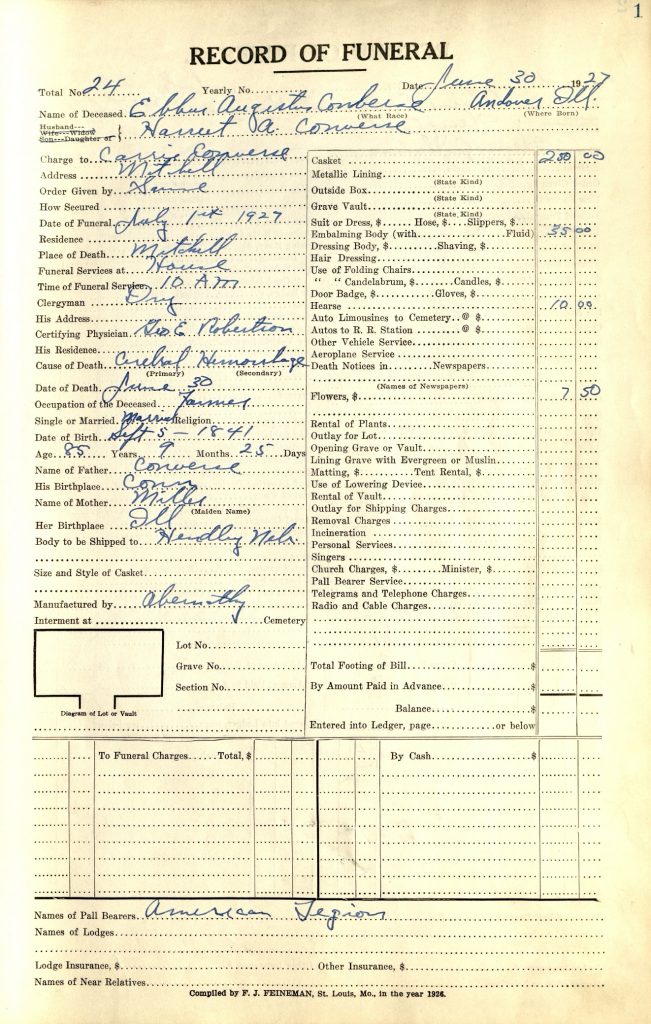 1
RECORD OF FUNERAL
Total No. 24 Yearly No. Date June 30 1927
Name of Deceased Augustus Converse Andover Ill.
(What Race) (Where Born)
Husband
Wife Widow
Son Daughter of } Harriet A Converse
Charge to Carrie Converse
Address Mitchell
Order Given by Same
How Secured
Date of Funeral July 1st 1927
Residence
Place of Death Mitchell
Funeral Services at House
Time of Funeral Service 10 A M
Clergyman
His Address
Certifying Physician Geo E Robertson
His Residence
Cause of Death Cerebral Hemorrhage
(Primary) (Secondary)
Date of Death June 30
Occupation of the Deceased Farmer
Single or Married Married Religion
Date of Birth Sept 5 - 1841
Age 85 Years 9 Months 25 Days
Name of Father Converse
His Birthplace Conn
Name of Mother Miller
(Maiden Name)
Her Birthplace Ill
Body to be Shipped to Hendley Nebr.
Size and Style of Casket
Manufactured by Abernathy
Interment at Cemetery
Lot No.
Grave No.
Section No.
Diagram of Lot or Vault
Casket 250 00
Metallic Lining
(State Kind)
Outside Box
(State Kind)
Grave Vault
(State Kind)
Suit or Dress, $ Hose, $ Slippers, $
Embalming Body (with Fluid) 35 00
Dressing Body, $ Shaving, $
Hair Dressing
Use of Folding Chairs
" " Candelabrum, $ Candles, $
Door Badge, $ Gloves, $
Hearse 10 00
Auto Limousines to Cemetery @ $
Autos to R. R. Station @ $
Other Vehicle Service
Aeroplane Service
Death Notices in Newspapers
(Names of Newspapers)
Flowers, $ 7 50
Rental of Plants
Outlay for Lot
Opening Grave or Vault
Lining Grave with Evergreen or Muslin
Matting, $ Tent Rental, $
Use of Lowering Device
Rental of Vault
Outlay for Shipping Charges
Removal Charges
Incineration
Personal Services
Singers
Church Charges, $ Minister, $
Pall Bearer Service
Telegrams and Telephone Charges
Radio and Cable Charges
Total Footing of Bill $
By Amount Paid in Advance $
Balance $
Entered into Ledger, page or below
To Funeral Charges Total, $ By Cash $
Names of Pall Bearers American Legion
Names of Lodges
Lodge Insurance, $ Other Insurance, $
Names of Near Relatives
Compiled by F. J. FEINEMAN, St. Louis, Mo., in the year 1926.